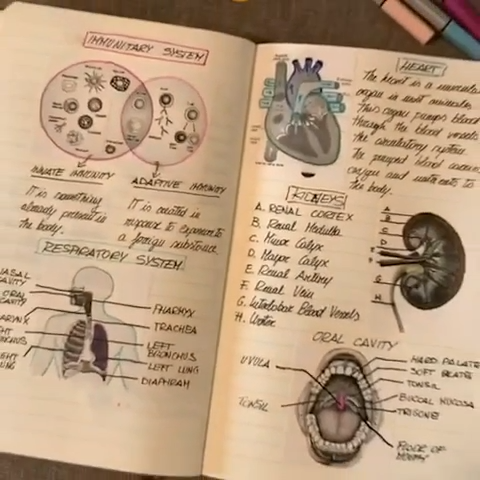 IMMUNITARY SYSTEM
INNATE IMMUNITY
It is something
already present in
the body.
ADAPTIVE IMMUNITY
It is created in
response to exposure to
a foreign substance.
RESPIRATORY SYSTEM
NASAL
CAVITY
ORAL
CAVITY
LARYNX
LUNG
PHARYX
TRACHEA
LEFT
BRONCHUS
LEFT LUNG
DIAPHRAM
HEART
The heart is a muscular
organ in most animals.
This organ pumps blood
through the blood vessels
the circulatory system.
The pumped blood carries
oxygen and nutrients to
the body.
KIDNEYS
A. RENAL CORTEX
B. Renal Medulla
C. Minor Calyx
D. Major Calyx
E. Renal Artery
F. Renal Vein
G. Interlobar Blood Vessels
H. Ureter
A
B
C
D
E
F
G
H
ORAL CAVITY
UVULA
TONSIL
HARD PALATE
SOFT
TONSIL
BUCCAL MUCOSA
TRIGONE
FLOOR OF